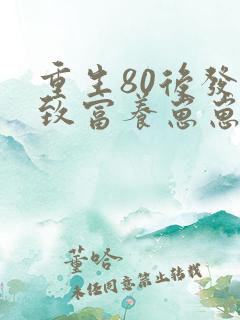 重生80後發
致富養崽崽
董哈
未經同意禁止轉載